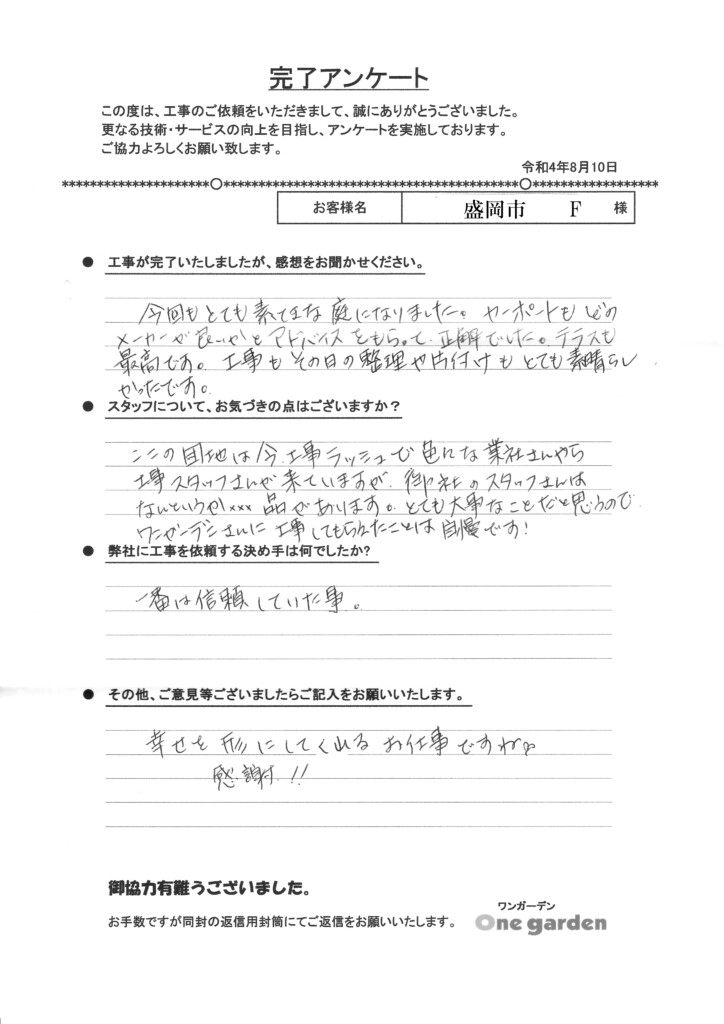 完了アンケート
この度は、工事のご依頼をいただきまして、誠にありがとうございました。
更なる技術・サービスの向上を目指し、アンケートを実施しております。
ご協力よろしくお願い致します。
令和4年8月10日
********************○**************************************○*****************
お客様名 盛岡市 F 様
● 工事が完了いたしましたが、感想をお聞かせください。
今回もとても素てきな庭になりました。カーポートもどの
メーカーが良いかとアドバイスをもらって、正解でした。テラスも
最高です。工事もその日の整理や片付けもとても素晴らし
かったです。
● スタッフについて、お気づきの点はございますか？
ここの団地は今、工事ラッシュで色々な業社さんやら
工事スタッフさんが来ていますが、御社のスタッフさんは
なんというか××× 品があります。とても大事なことだと思うので
ワンガーデンさんに工事してもらえたことは自慢です!
● 弊社に工事を依頼する決め手は何でしたか?
一番は信頼していた事。
● その他、ご意見等ございましたらご記入をお願いいたします。
幸せを形にしてくれるお仕事ですね。
感謝!!
御協力有難うございました。
お手数ですが同封の返信用封筒にてご返信をお願いいたします。
ワンガーデン
One garden